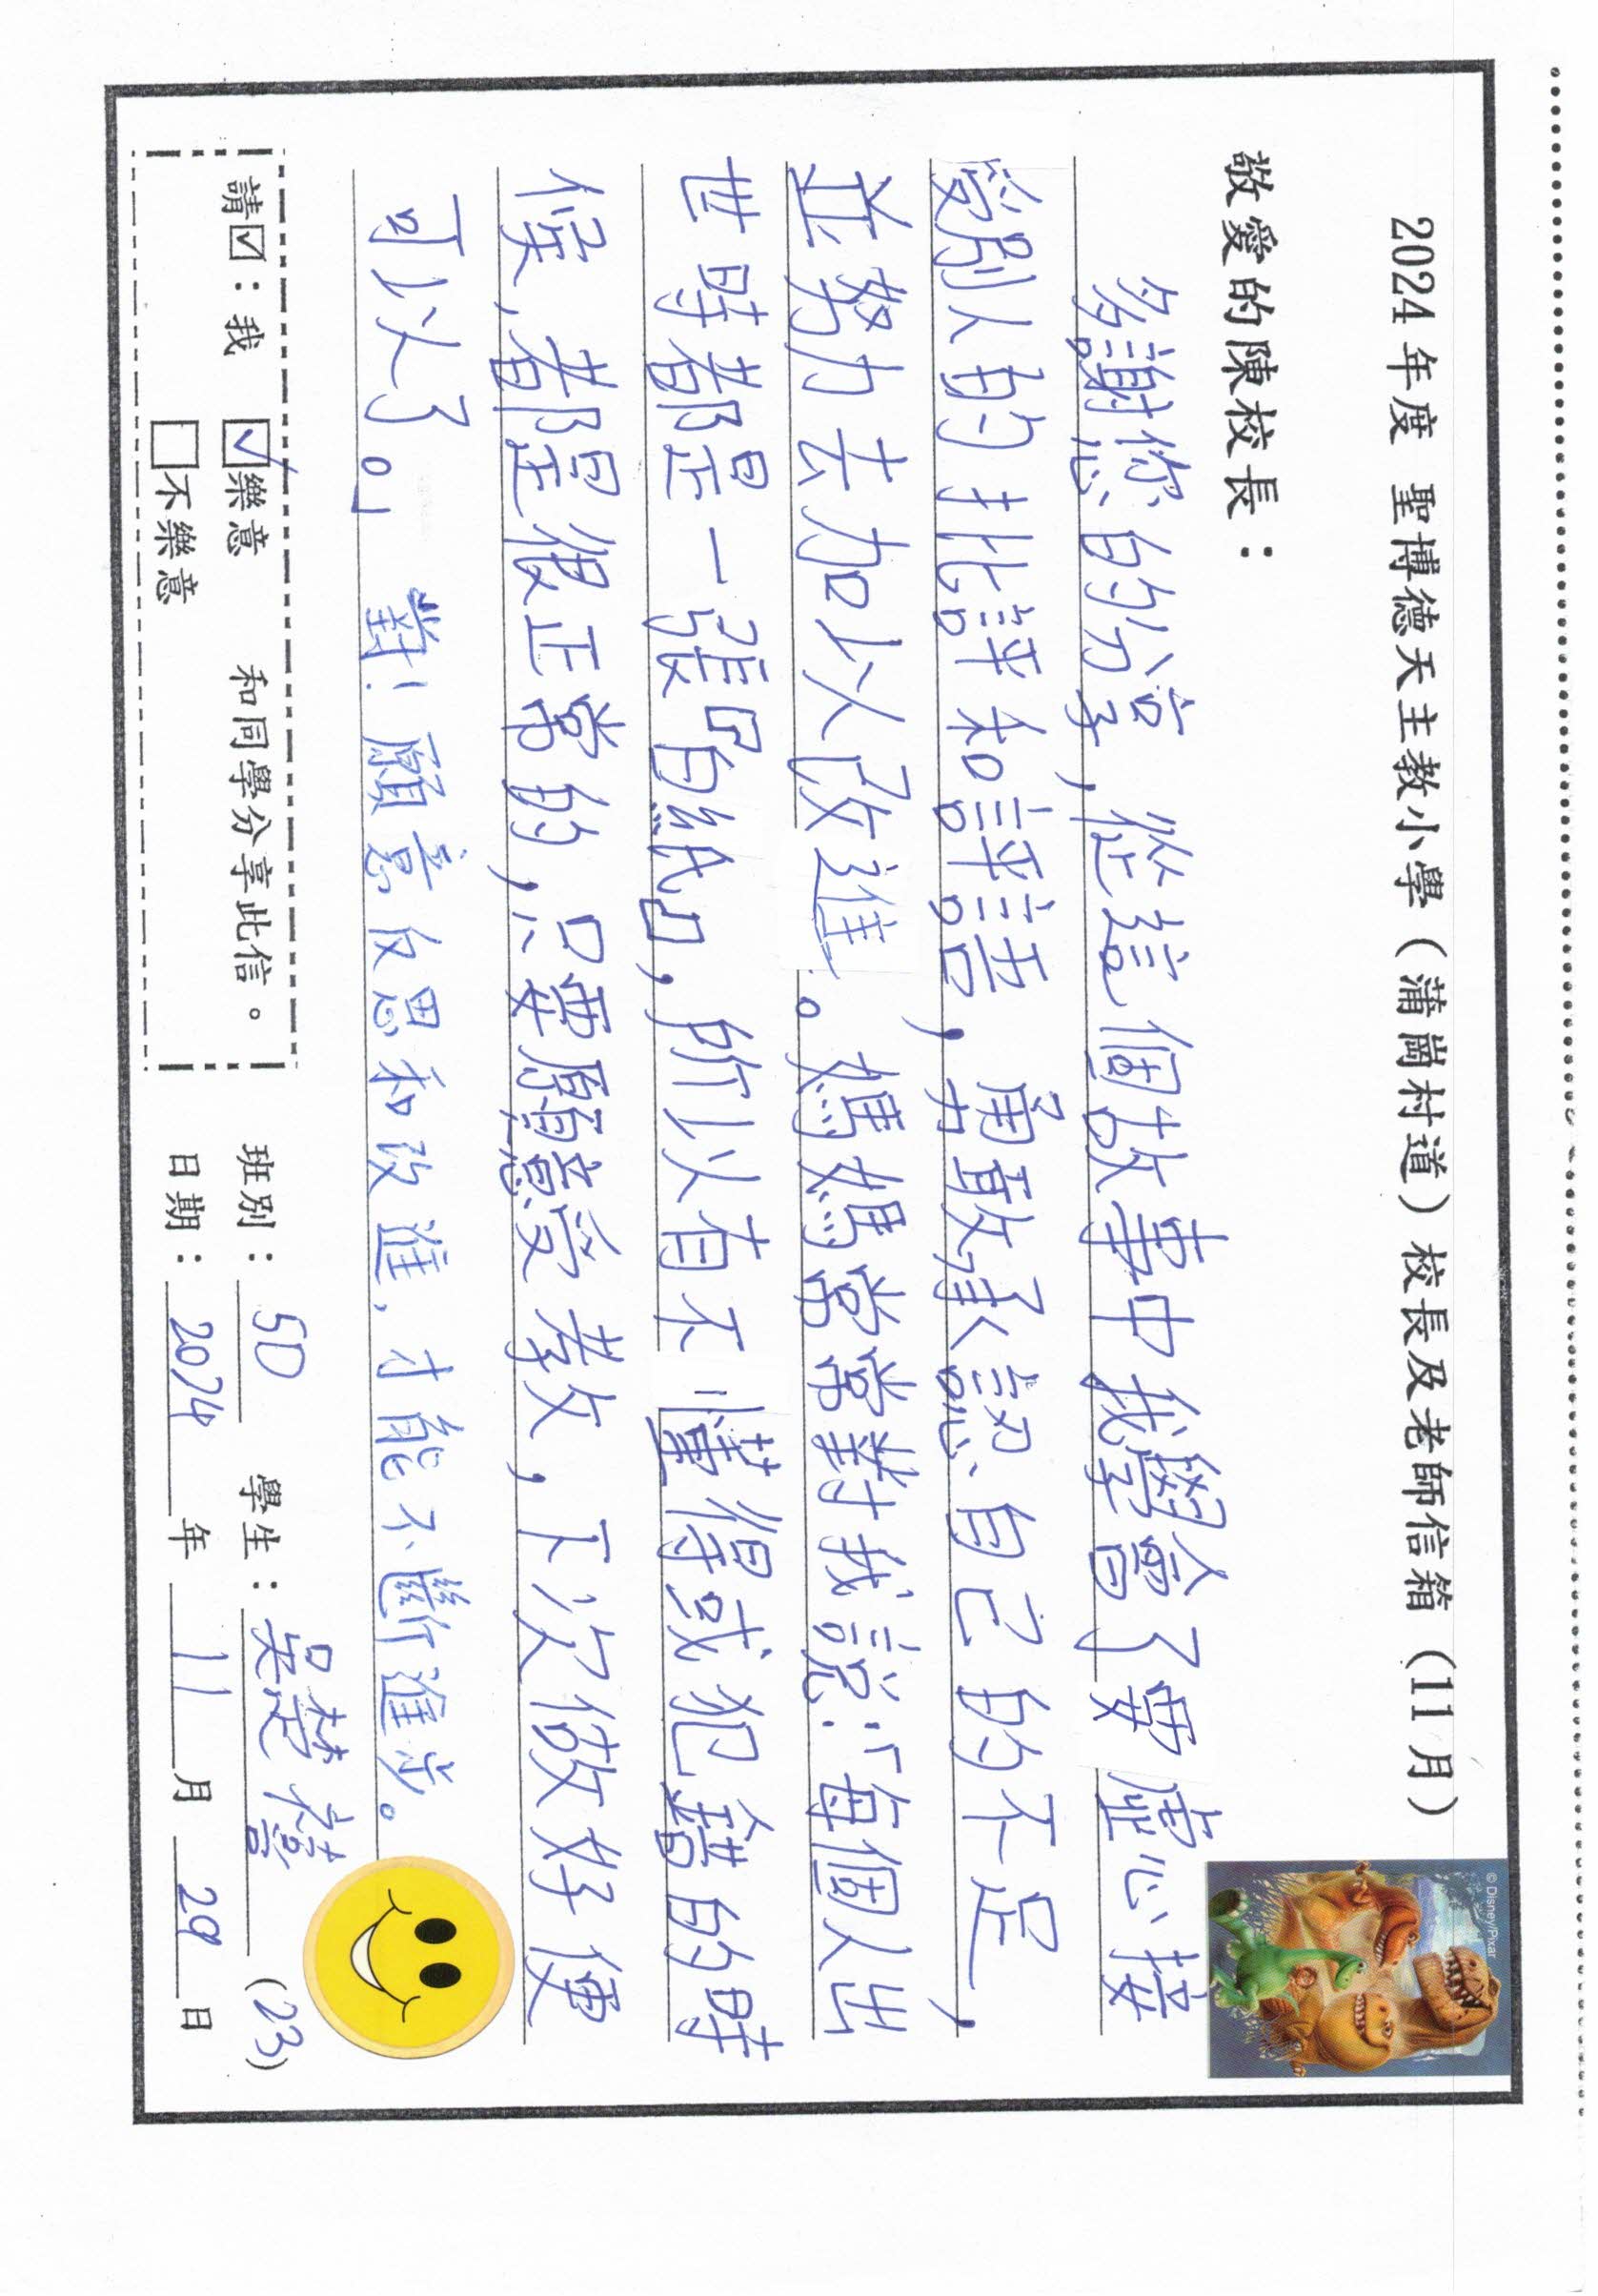 2024年度 聖博德天主教小學（蒲崗村道）校長及老師信箱（11月）
敬愛的陳校長：
多謝您的分享，從這個故事中我學會了要虛心接
受別人的批評和評語，勇敢承認自己的不足，
並努力去加以改進。媽媽常常對我說：「每個人出
世時都是一張白紙，所以有不懂得或犯錯的時
候，都是很正常的，只要願意受教，下次做好便
可以了。」 對！願意反思和改進，才能不斷進步。
請☑：我 ☑樂意 和同學分享此信。
☐不樂意
班別：5D 學生：吳楚禧 (23)
日期：2024年11月29日
© Disney/Pixar